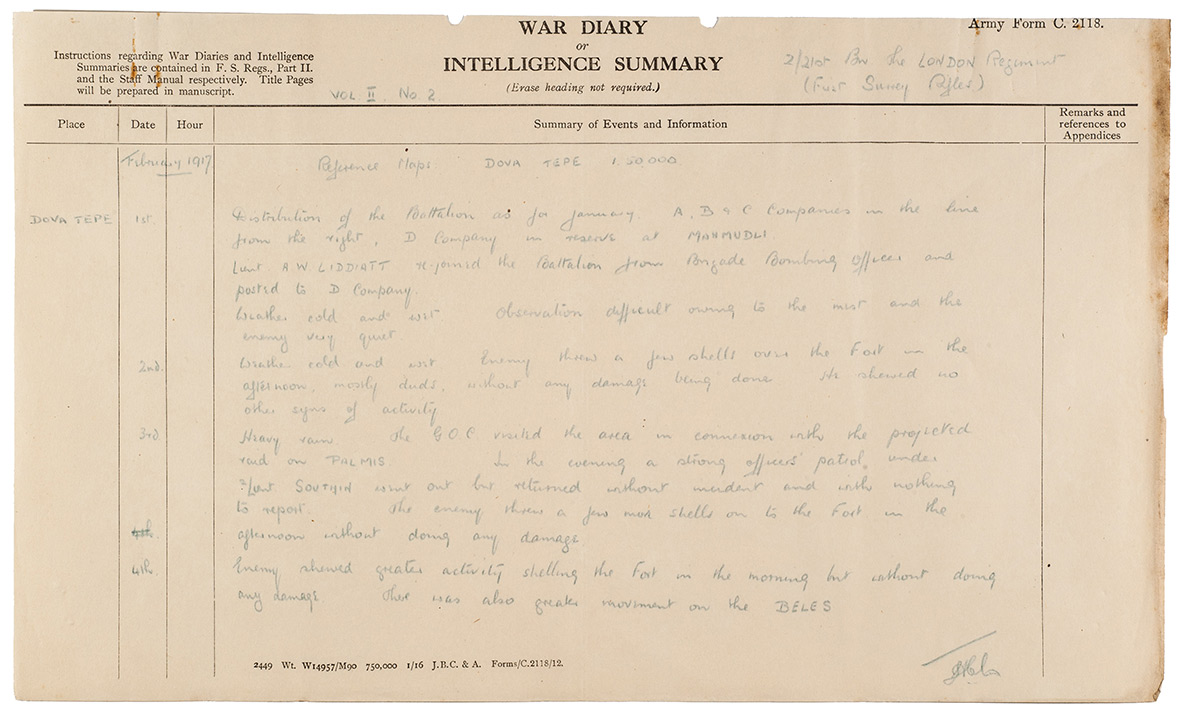 WAR DIARY
or
INTELLIGENCE SUMMARY
(Erase heading not required.)
Army Form C. 2118.
Instructions regarding War Diaries and Intelligence
Summaries are contained in F. S. Regs., Part II.
and the Staff Manual respectively. Title Pages
will be prepared in manuscript.
VOL II. No 2.
2/21st Bn the LONDON Regiment
(First Surrey Rifles)
Place Date Hour Summary of Events and Information Remarks and references to Appendices
February 1917 Reference Maps DOVA TEPE 1.50.000
DOVA TEPE 1st. Distribution of the Battalion as for January. A, B & C Companies in the line
from the right, D Company in reserve at MAHMUDLI.
Lieut A.W. LIDDIATT rejoined the Battalion from Brigade Bombing Officer and
posted to D Company.
Weather cold and wet Observation difficult owing to the mist and the
enemy very quiet.
2nd. Weather cold and wet Enemy threw a few shells over the Fort in the
afternoon, mostly duds, without any damage being done He shewed no
other signs of activity
3rd Heavy rain. The G.O.C visited the area in connexion with the projected
raid on PALMIS. In the evening a strong officers' patrol, under
2/Lieut SOUTHIN went out but returned without incident and with nothing
to report. The enemy threw a few more shells on to the Fort in the
4th. afternoon without doing any damage.
4th. Enemy shewed greater activity shelling the Fort in the morning but without doing
any damage There was also greater movement on the BELES
2449 Wt. W14957/M90 750,000 1/16 J.B.C. & A. Forms/C.2118/12.